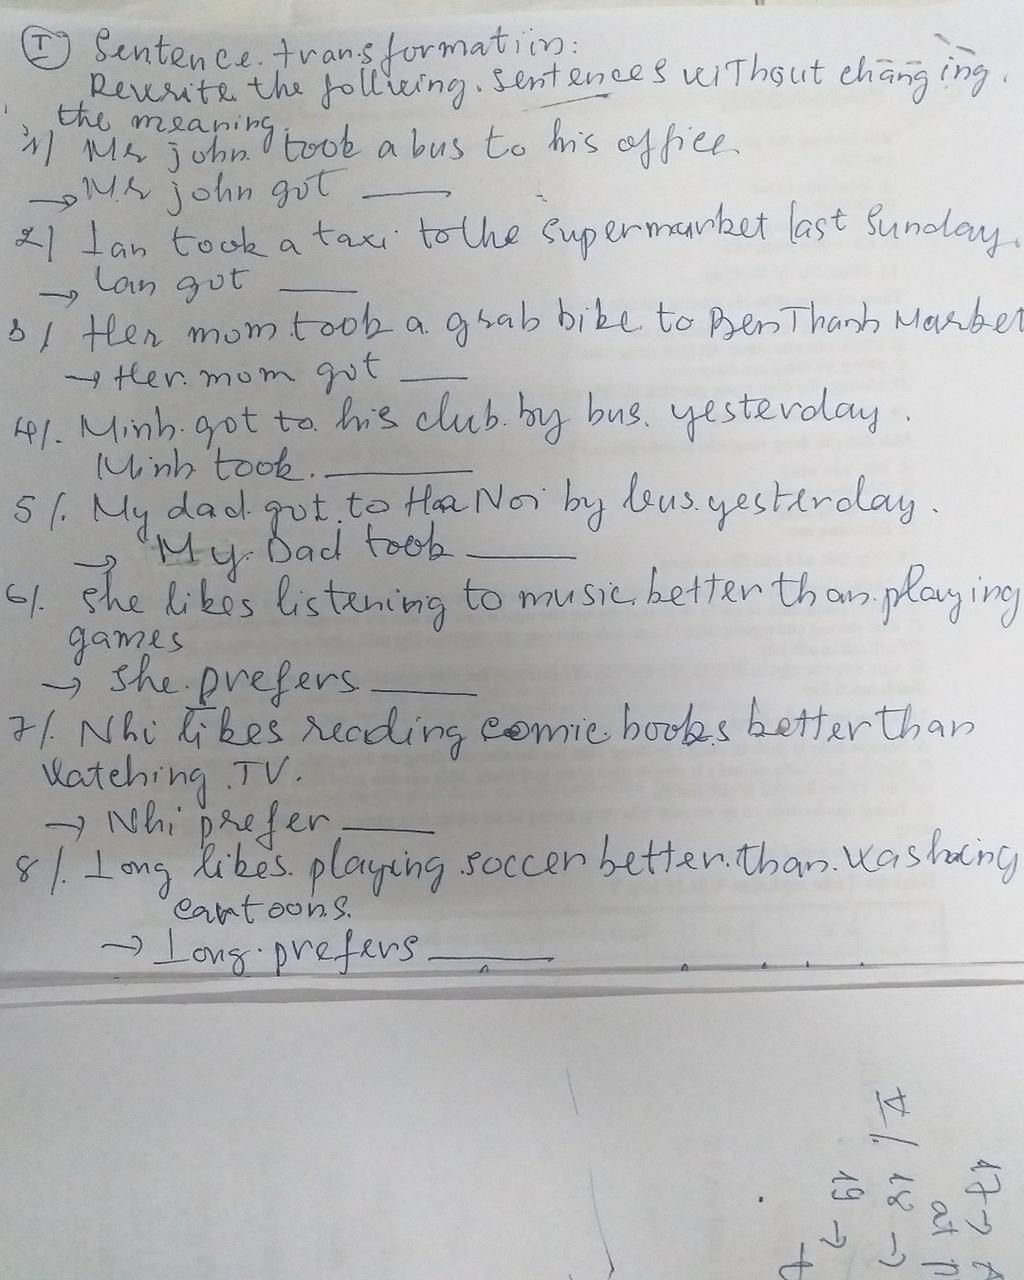 I Sentence transformatiin:
Rewrite the follwing sentences without changing
the meaning.
1/ Mr john took a bus to his office.
→ Mr john got ____
2/ Lan took a taxi to the supermarket last Sunday.
→ Lan got ____
3/ Her mom took a grab bike to Ben Thanh Market
→ Her mom got ____
4/. Minh got to his club by bus yesterday.
Minh took ____
5/. My dad got to Ha Noi by bus yesterday.
→ My Dad took ____
6/. She likes listening to music better than playing
games
→ She prefers ____
7/. Nhi likes reading comic books better than
Watching TV.
→ Nhi prefer ____
8/. Long likes playing soccer better than
cartoons.
→ Long prefers ____
V/.
17 →
18 →
19 →